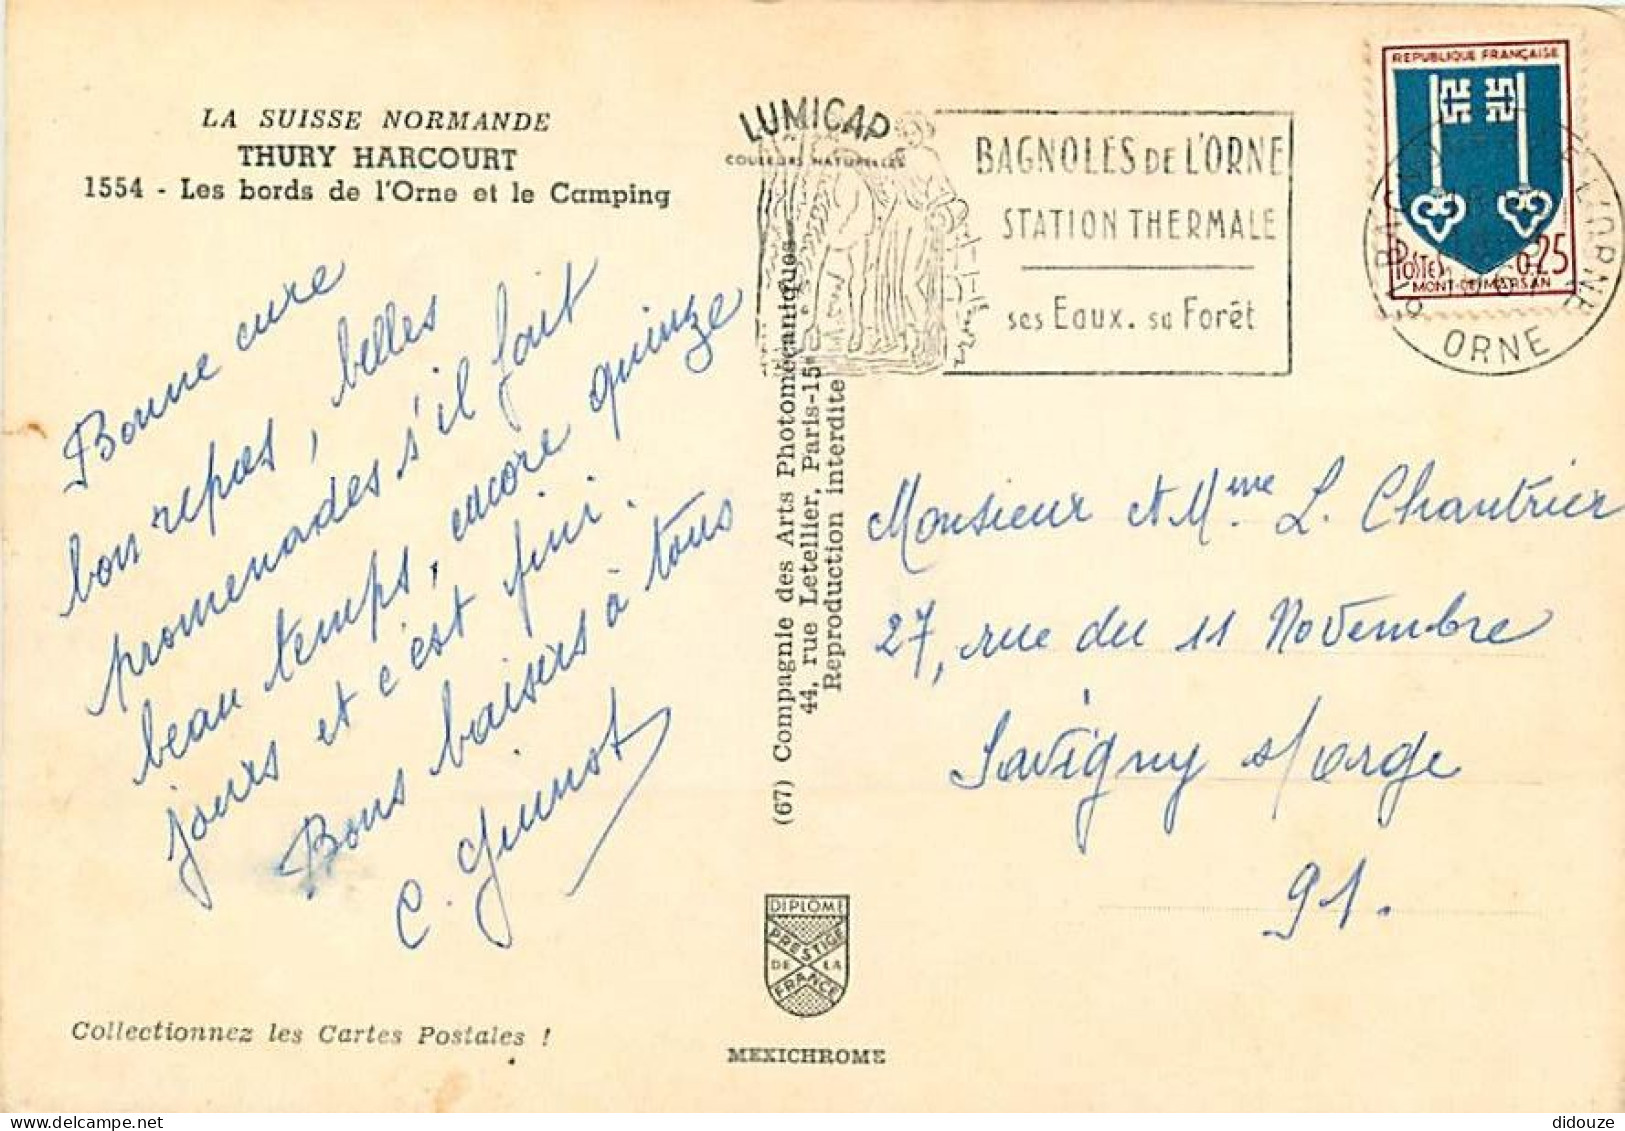 LA SUISSE NORMANDE
THURY HARCOURT
1554 - Les bords de l'Orne et le Camping
Bonne cure
bon repos, belles
promenades s'il fait
beau temps, encore quinze
jours et c'est fini.
Bons baisers à tous
C. Guinot
Collectionnez les Cartes Postales !
LUMICAP
COULEURS NATURELLES
BAGNOLES DE L'ORNE
STATION THERMALE
ses Eaux. sa Forêt
REPUBLIQUE FRANÇAISE
POSTES 0,25
MONT-DE-MARSAN
ORNE
(67) Compagnie des Arts Photomécaniques
44, rue Letellier, Paris-15e
Reproduction interdite
Monsieur et Mme L. Chautrier
27, rue du 11 Novembre
Savigny s/orge
91.
DIPLÔME
PRESTIGE
DE LA
FRANCE
MEXICHROME
didouze